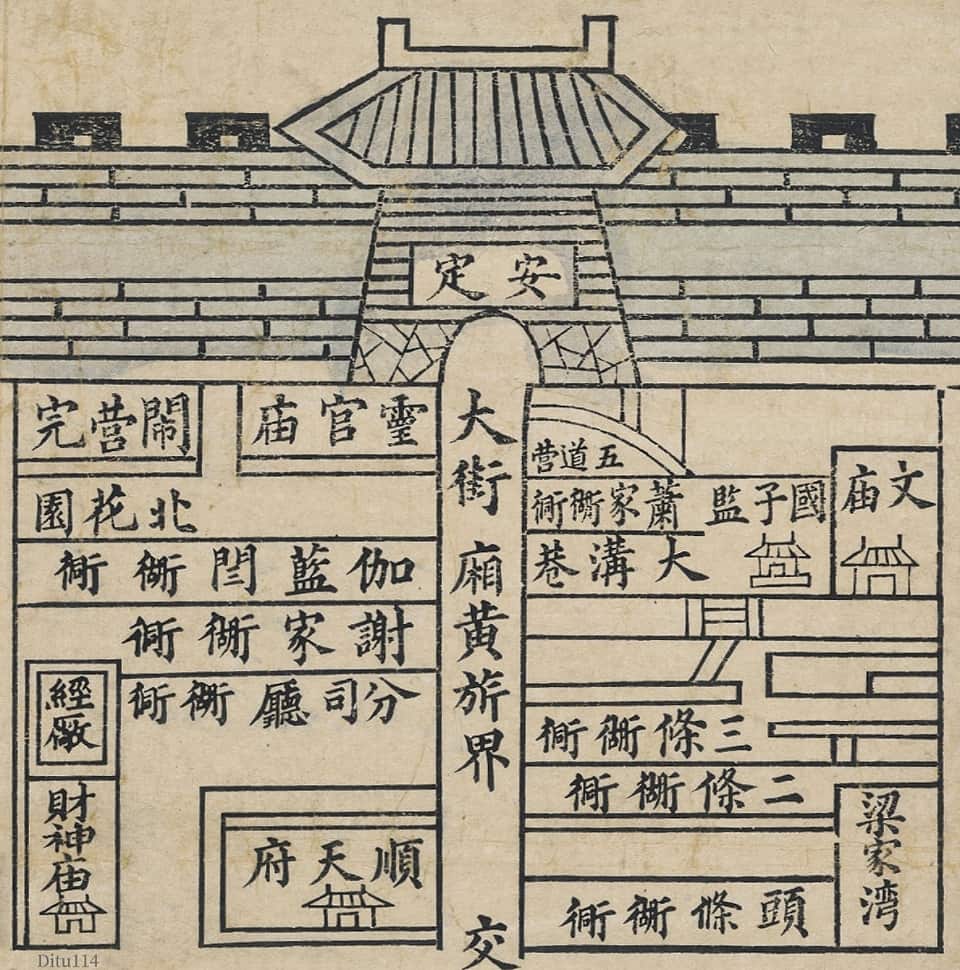 安定
大街廂黄旂界
交
靈官庙
鬧營完
北花園
伽藍閆衚衕
謝家衚衕
分司廳衚衕
經廠
財神庙
順天府
五道营
國子監
蕭家衚衕
文庙
大溝巷
三條衚衕
二條衚衕
梁家湾
頭條衚衕
Ditu114